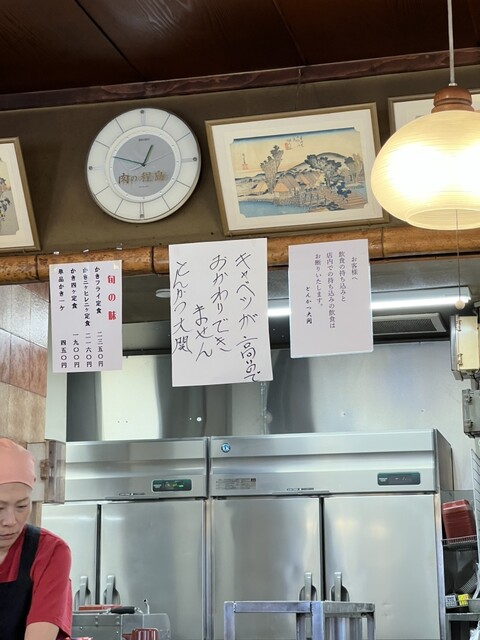 肉の怪鳥
旬の味
かきフライ定食 二三五〇円
かき二ヶヒレ二ヶ定食 二一六〇円
かき四ヶ定食 一九〇〇円
単品かき一ヶ 四五〇円
キャベツが高いで
おかわりでき
ません
とんかつ大関
お客様へ
飲食の持ち込みと
店内での持ち込みの飲食は
お断りいたします。
とんかつ大関